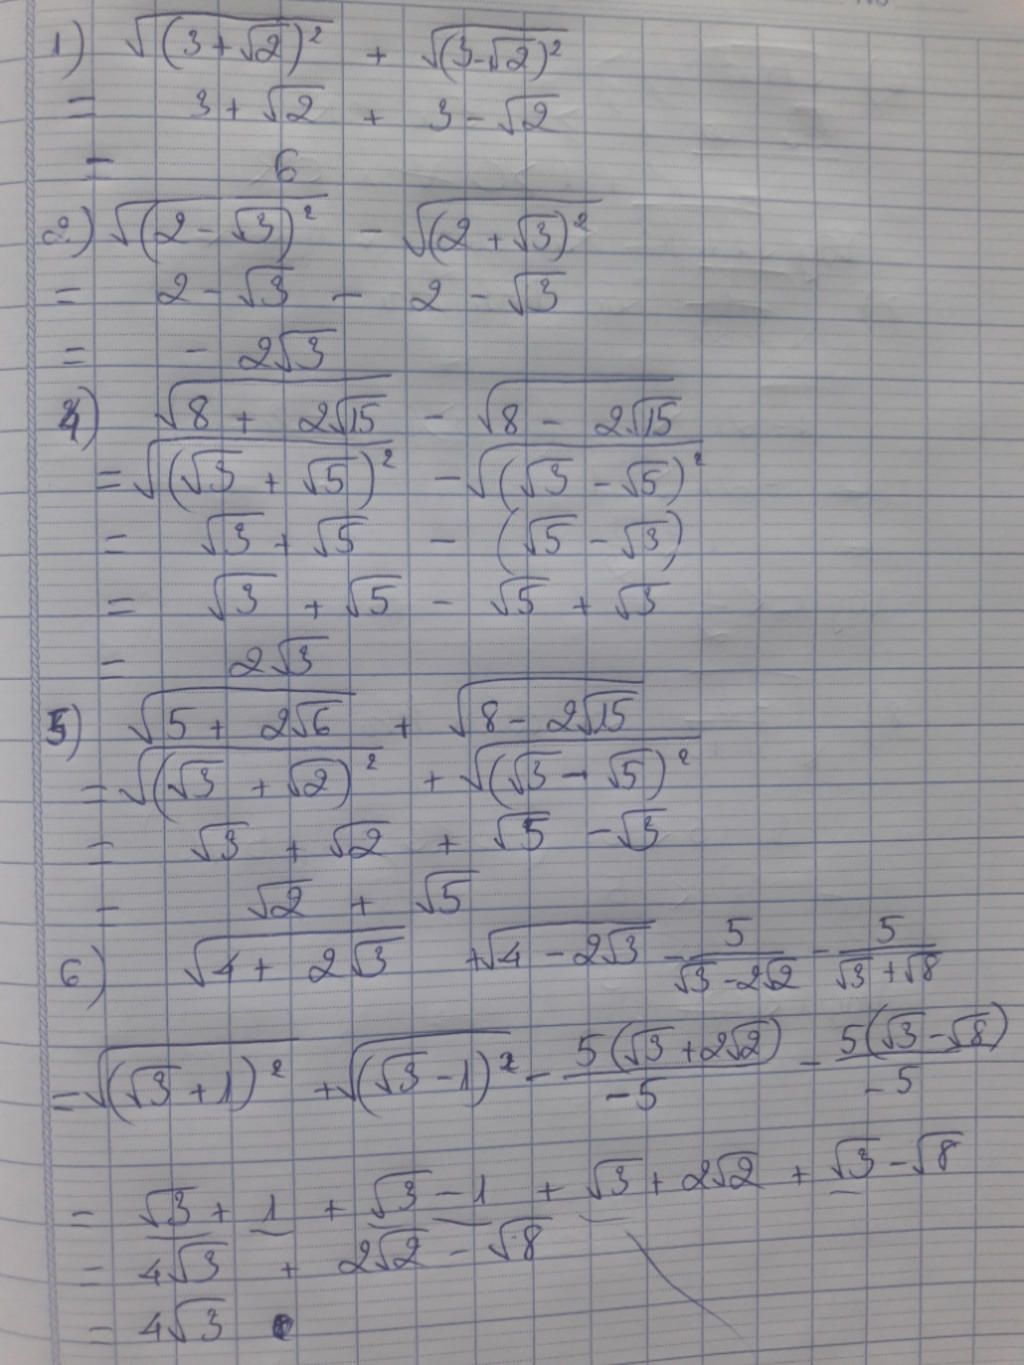 1) √(3+√2)² + √(3-√2)²
= 3 + √2 + 3 - √2
= 6
2) √(2 - √3)² - √(2 + √3)²
= 2 - √3 - 2 - √3
= - 2√3
4) √8 + 2√15 - √8 - 2√15
= √(√3 + √5)² - √(√3 - √5)²
= √3 + √5 - (√5 - √3)
= √3 + √5 - √5 + √3
= 2√3
5) √5 + 2√6 + √8 - 2√15
= √(√3 + √2)² + √(√3 - √5)²
= √3 + √2 + √5 - √3
= √2 + √5
6) √4 + 2√3 + √4 - 2√3 - 5/(√3 - 2√2) - 5/(√3 + √8)
= √(√3 + 1)² + √(√3 - 1)² - 5(√3 + 2√2)/-5 - 5(√3 - √8)/-5
= √3 + 1 + √3 - 1 + √3 + 2√2 + √3 - √8
= 4√3 + 2√2 - √8
= 4√3